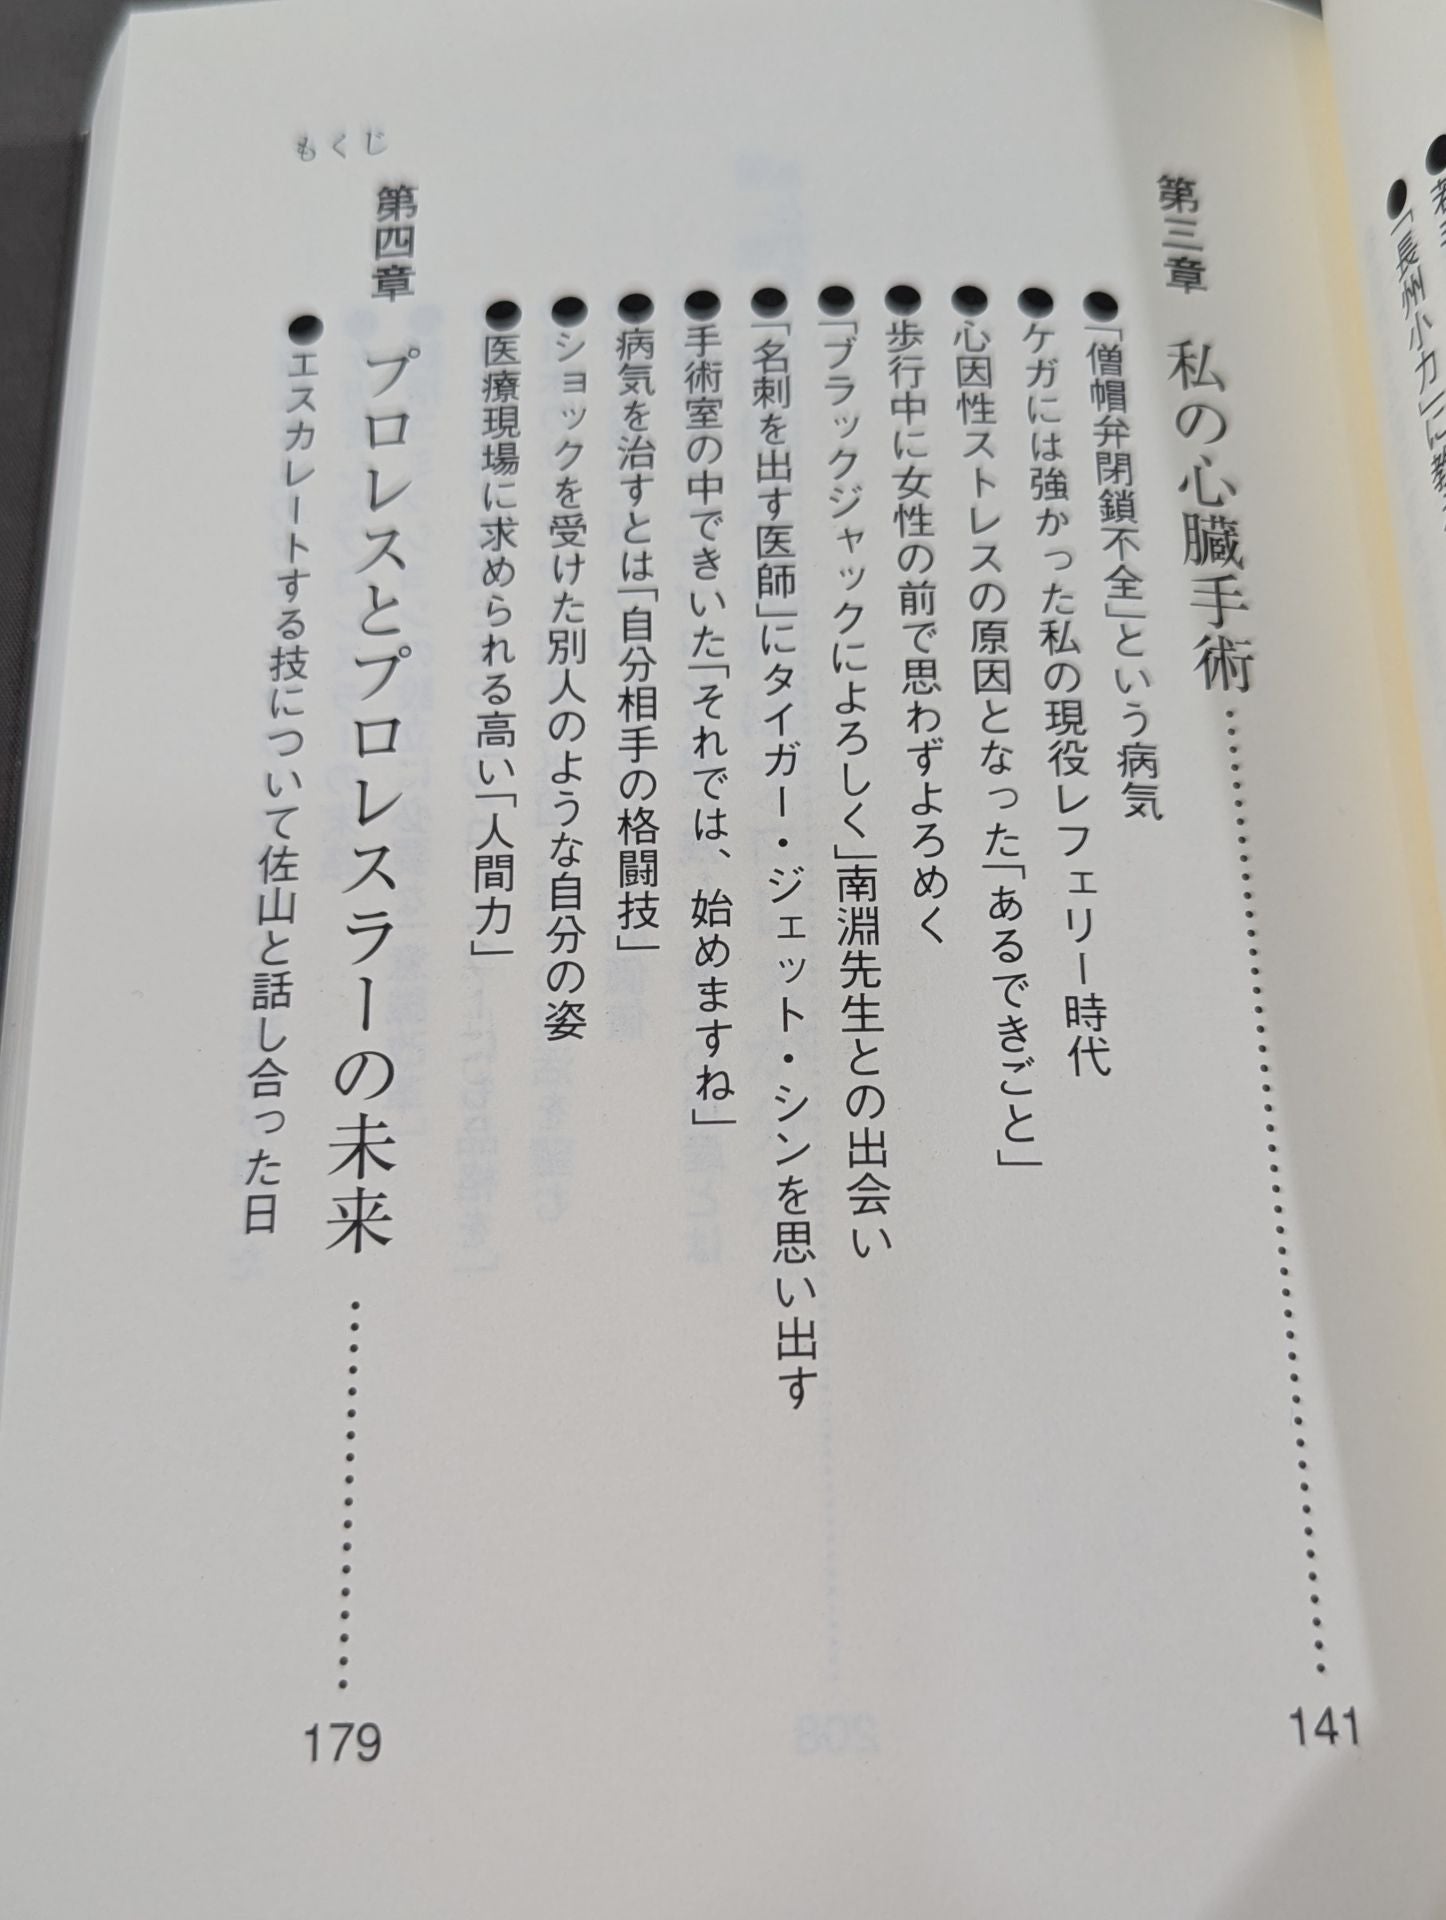 「長州小力」に教
第三章　私の心臓手術……………………141
●「僧帽弁閉鎖不全」という病気
●ケガには強かった私の現役レフェリー時代
●心因性ストレスの原因となった「あるできごと」
●歩行中に女性の前で思わずよろめく
●「ブラックジャックによろしく」南淵先生との出会い
●「名刺を出す医師」にタイガー・ジェット・シンを思い出す
●手術室の中できいた「それでは、始めますね」
●病気を治すとは「自分相手の格闘技」
●ショックを受けた別人のような自分の姿
●医療現場に求められる高い「人間力」
第四章　プロレスとプロレスラーの未来……………………179
●エスカレートする技について佐山と話し合った日
もくじ